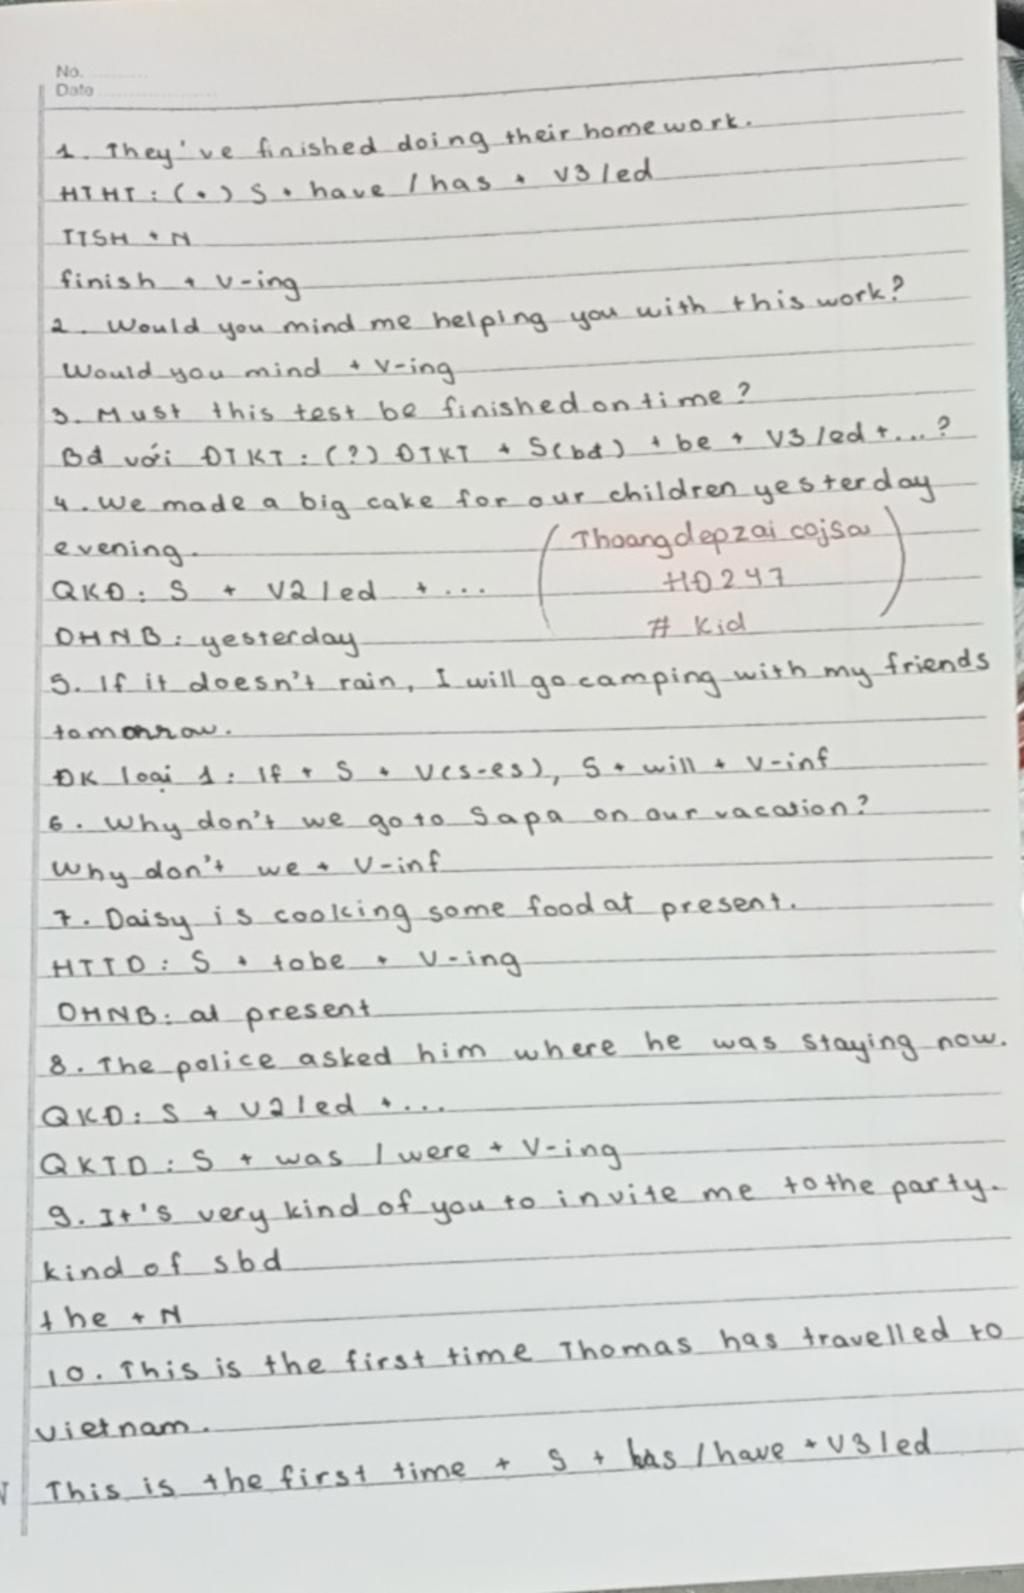 No.
Date
1. They've finished doing their homework.
HTHT: (+) S + have / has + V3/ed
TTSH + N
finish + V-ing
2. Would you mind me helping you with this work?
Would you mind + V-ing
3. Must this test be finished on time?
Bđ với ĐTKT: (?) ĐTKT + S(bđ) + be + V3/ed + ...?
4. We made a big cake for our children yesterday
evening.
QKĐ: S + V2/ed + ...
ĐHNB: yesterday
(Thoangdepzai cojsa
HD247
# Kid)
5. If it doesn't rain, I will go camping with my friends
tomorrow.
ĐK loại 1: If + S + V(s-es), S + will + V-inf
6. Why don't we go to Sapa on our vacation?
Why don't we + V-inf
7. Daisy is cooking some food at present.
HTTD: S + tobe + V-ing
DHNB: at present
8. The police asked him where he was staying now.
QKD: S + V2/ed + ...
QKTD: S + was / were + V-ing
9. It's very kind of you to invite me to the party.
kind of sbd
the + N
10. This is the first time Thomas has travelled to
vietnam.
This is the first time + S + has / have + V3/ed